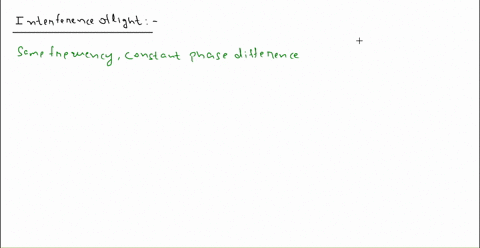 Interference of light:-
Same frequency, constant phase difference